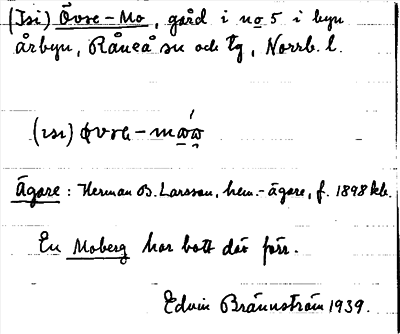 (Isi) Övre-Mo, gård i no 5 i byn
årbyn, Råneå sn och tg, Norrb. l.
Ägare: Herman B. Larsson, hem.-ägare, f. 1898 ktr.
En Moberg har bott där förr.
Edvin Brännström 1939.